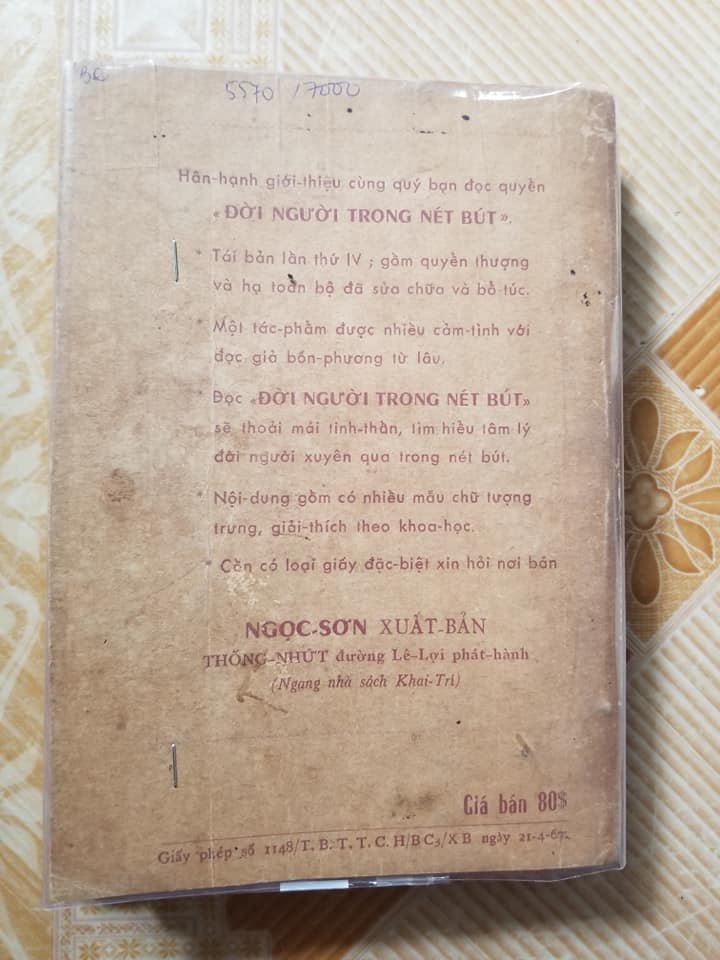 5570 / 7000
Hân-hạnh giới-thiệu cùng quý bạn đọc quyển
« ĐỜI NGƯỜI TRONG NÉT BÚT ».
* Tái bản lần thứ IV ; gồm quyển thượng
và hạ toàn bộ đã sửa chữa và bổ túc.
* Một tác-phẩm được nhiều cảm-tình với
đọc giả bốn-phương từ lâu.
* Đọc «ĐỜI NGƯỜI TRONG NÉT BÚT»
sẽ thoải mái tinh-thần, tìm hiểu tâm lý
đời người xuyên qua trong nét bút.
* Nội-dung gồm có nhiều mẫu chữ tượng
trưng, giải-thích theo khoa-học.
* Còn có loại giấy đặc-biệt xin hỏi nơi bán
NGỌC-SƠN XUẤT-BẢN
THỐNG-NHỨT đường Lê-Lợi phát-hành
(Ngang nhà sách Khai-Trí)
Giá bán 80$
Giấy phép số 1148/T.B.T.T.C.H/BC3/XB ngày 21-4-67.